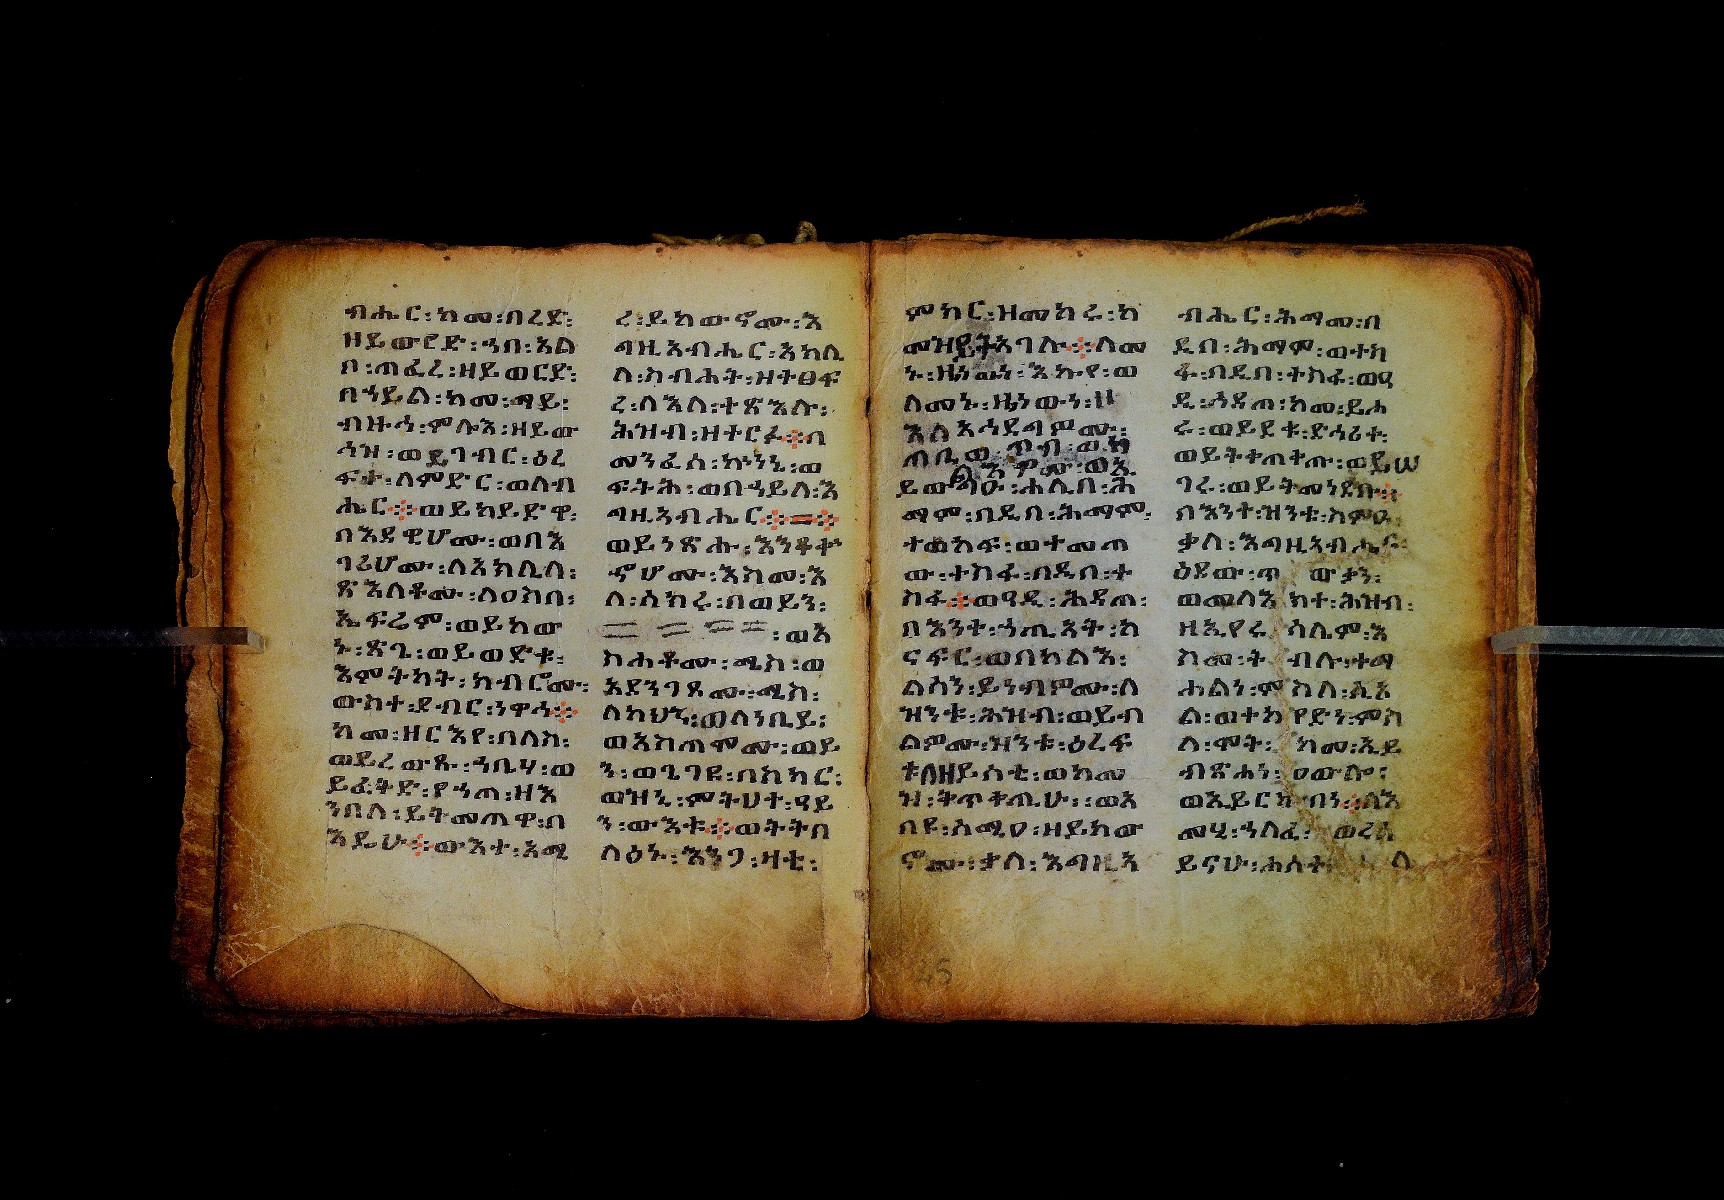 ብሔር፡ከመ፡በረድ፡
ዘይወርድ፡ኀበ፡አል
ቦ፡ጠፈረ፡ዘይወርድ፡
በኀይል፡ከመ፡ማይ፡
ብዙኅ፡ምሉእ፡ዘይው
ሕዝ፡ወይገብር፡ዕረ
ፍተ፡ለምድር፡ወለብ
ሔር፨ወይከይድዋ፡
በእደዊሆሙ፡ወበእ
ገሪሆሙ፡ለአክሊለ፡
ጽእለቶሙ፡ለዐስበ፡
ኤፍሬም፡ወይከው
ኑ፡ጽጌ፡ወይወድቁ፡
እምትክት፡ክብሮሙ፡
ውስተ፡ደብር፡ነዋኅ፨
ከመ፡ዘርእየ፡በለስ፡
ወይረውጹ፡ኀቤሃ፡ወ
ይፈትድ፡የኀጠ፡ዘእ
ንበለ፡ይትመጠዋ፡በ
እይሁ፨ውእተ፡አሚ
ረ፡ይከውኖሙ፡እ
ግዚአብሔር፡አክሊ
ለ፡ስብሐት፡ዘተፀፍ
ረ፡ለእለ፡ተጽእሉ፡
ሕዝብ፡ዘተርፉ፨በ
መንፈስ፡ኵነኔ፡ወ
ፍትሕ፡ወበኀይለ፡እ
ግዚአብሔር፨
ወይነጽሑ፡እንቶት
ኖሆሙ፡እስመ፡እ
ለ፡ሰከሩ፡በወይን፡
፡ወእ
ስሐቶሙ፡ሜስ፡ወ
አደንገጾሙ፡ሜስ፡
ለካህን፡ወለነቢይ፡
ወአስጠሞሙ፡ወይ
ን፡ወጌገዩ፡በስካር፡
ወዝኒ፡ምትሀተ፡ዓይ
ን፡ውእቱ፨ወትትበ
ለዕኑ፡እንጋ፡ዛቲ፡
ምክር፡ዘመከሩ፡ከ
አጋሉ፨ለመ
እኩየ፡ወ
ለመኑ፡ዜነውነ፡
አኅደግምሙ፡
ጥብ፡
ይወግዑ፡ሐሊበ፡ሕ
ማም፡በዲበ፡ሕማም፡
ተወከፍ፡ወተመጠ
ው፡ተስፋ፡በዲበ፡ተ
ስፋ፨ወዓዲ፡ሕዳጠ፡
በእንተ፡ኀጢአት፡ከ
ናፍር፡ወበካልእ፡
ልሳን፡ይነብምሙ፡ለ
ዝንቱ፡ሕዝብ፡ወይብ
ልዎሙ፡ዝንቱ፡ዕረፍ
ቱ፡ለዘይስቲ፡ወከመ
ዝ፡ትጥቀጢሁ፡፡ወአ
በዩ፡ሰሚዐ፡ዘይከው
ኖሙ፡ቃለ፡እግዚአ
ብሔር፡ሕማመ፡በ
ዲበ፡ሕማም፡ወተስ
ፋ፡በዲበ፡ተስፋ፡ወዓ
ዲ፡ኅዳጠ፡ከመ፡ይሐ
ሩ፡ወይደቁ፡ድኅሪተ፡
ወይትቀጠቀጡ፡ወይሠ
ገሩ፡ወይትመነደቡ፨
በእንተ፡ዝንቱ፡ስምዑ፡
ቃለ፡እግዚአብሔር፡
ዕደው፡ጥ ውቃን፡
ወመለእክተ፡ሕዝብ፡
ዘኢየሩሳሌም፡እ
ስመ፡ት ብሉ፡ተማ
ሐልነ፡ምስለ፡ሲኦ
ል፡ወተካየድነ፡ምስ
ለ፡ሞት፡ከመ፡ኢይ
ብጽሐነ፡ዐውሎ፡
ወኢይርከበነ፨ለእ
መሂ፡ኀለፈ፡
ይናሁ፡ሐሰተ